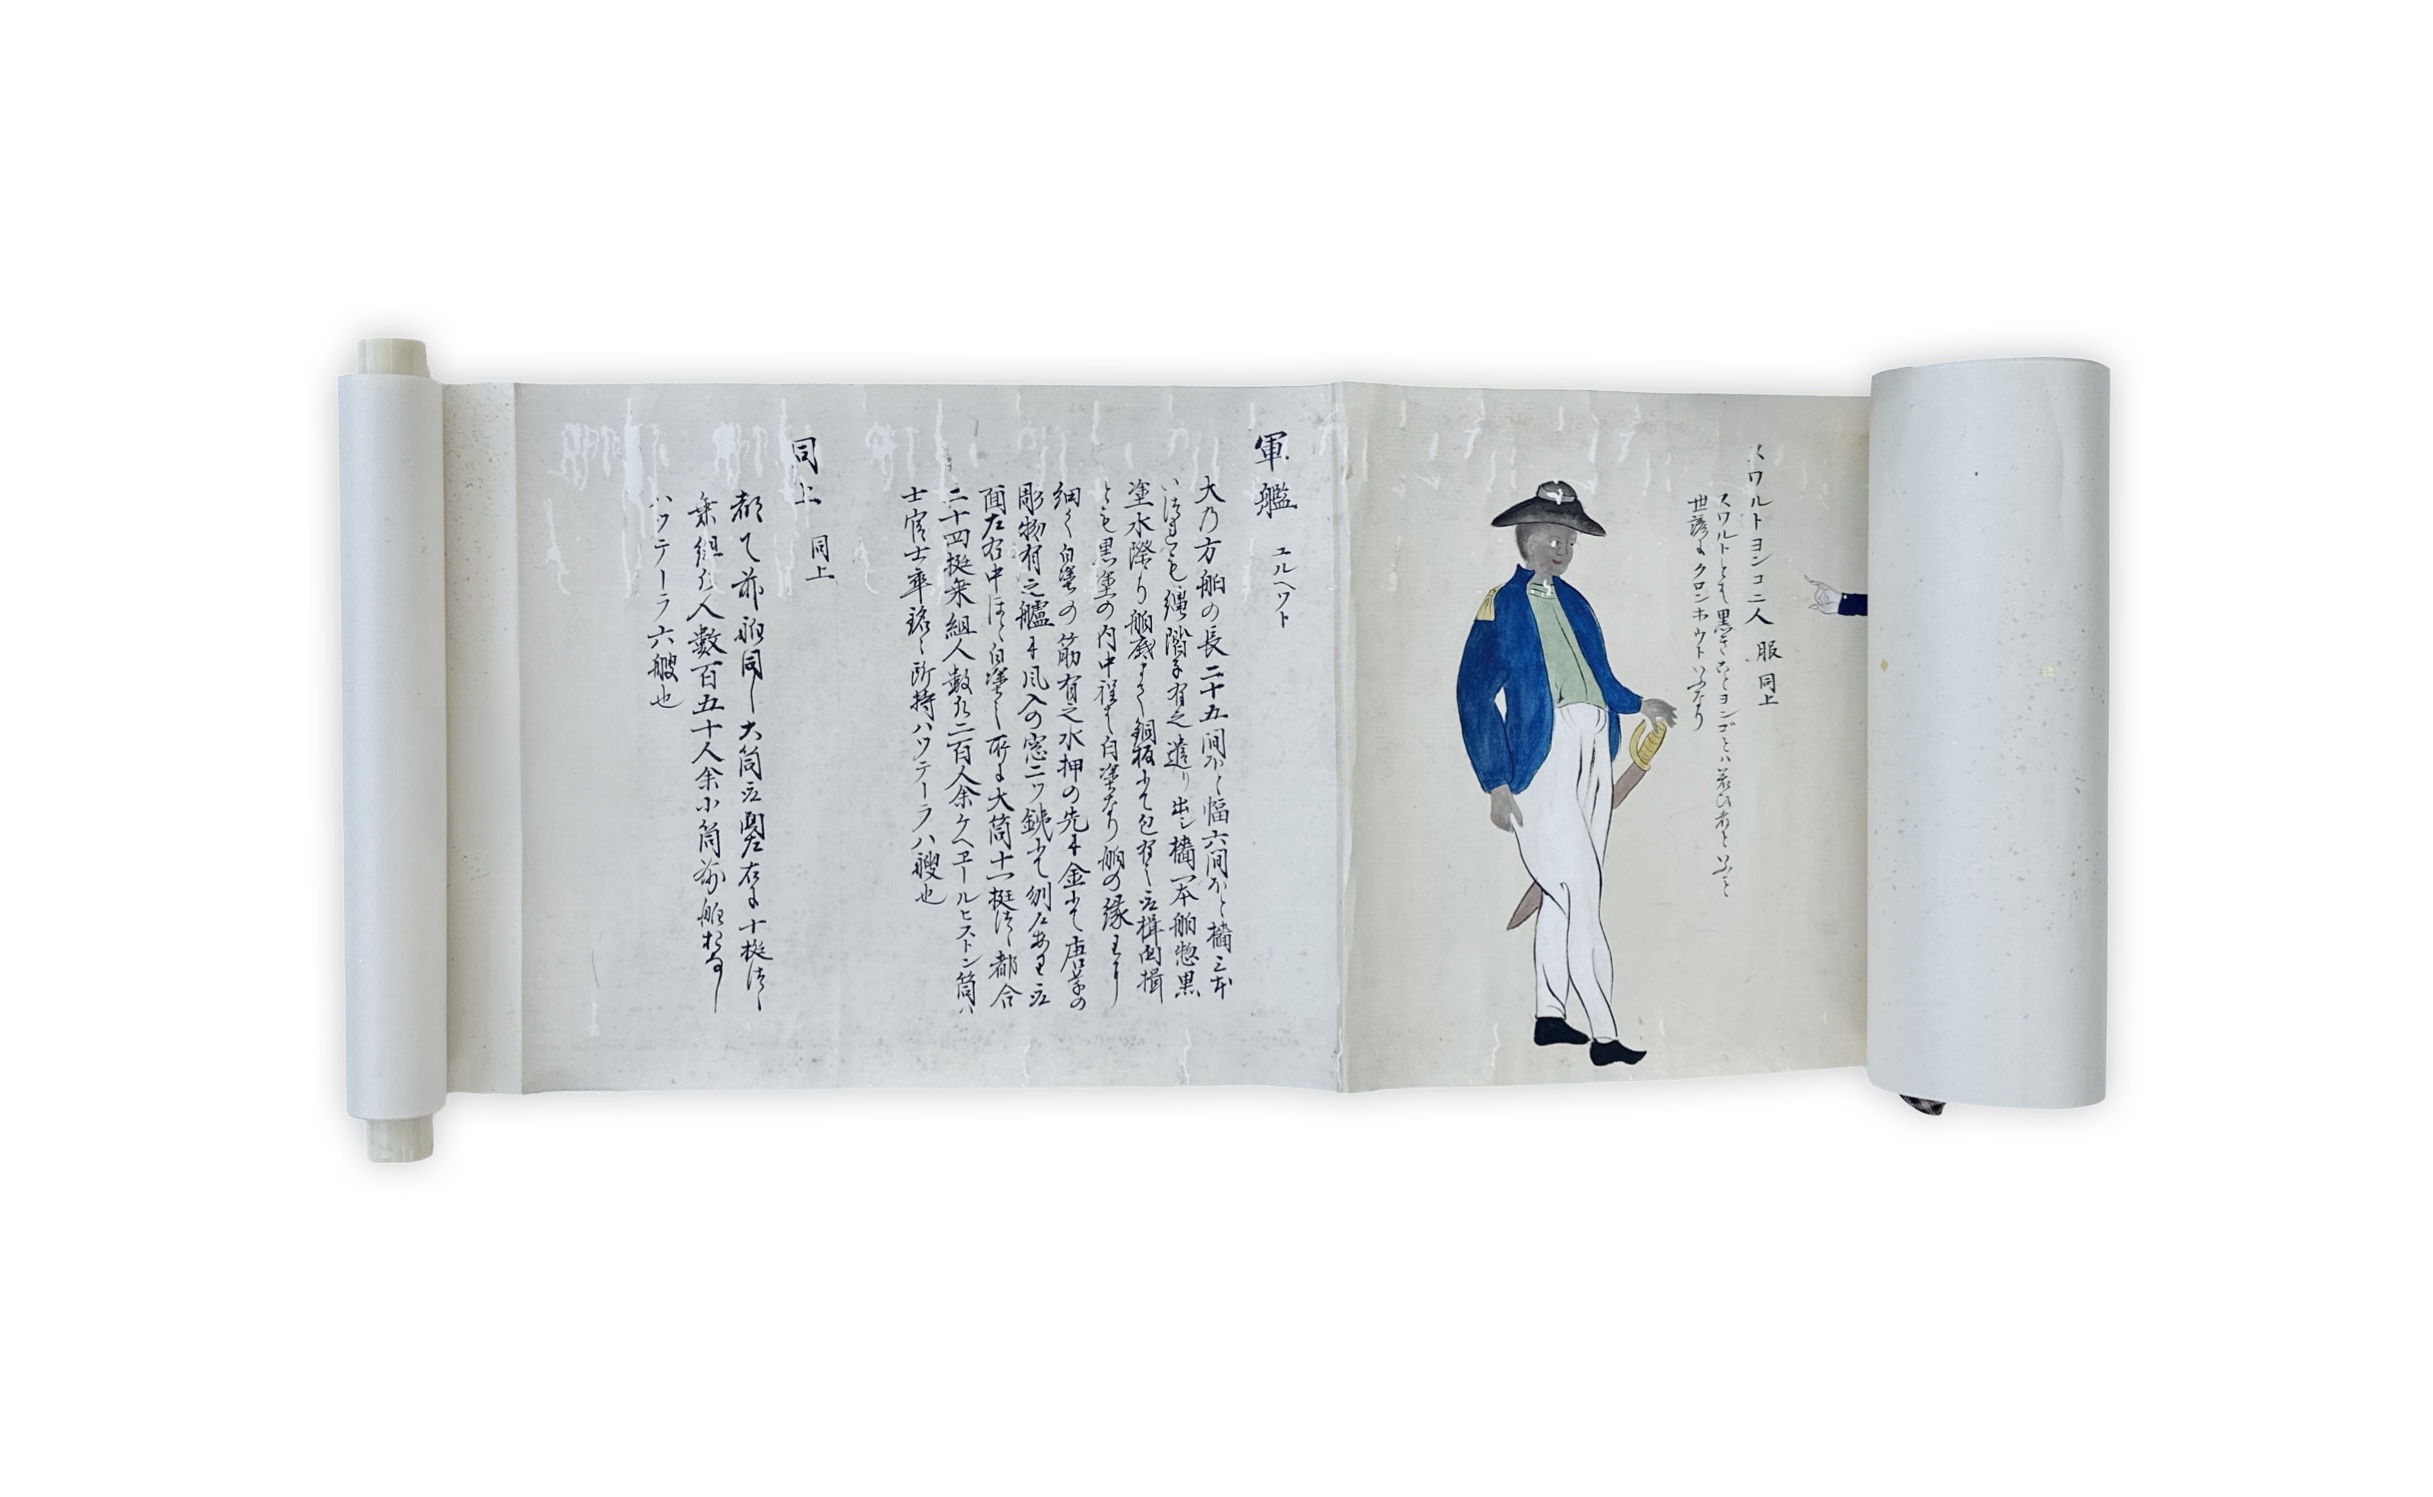 スワルトヨンコ二人 服同上
スワルトとは黒きことヨンゴとは若ひ者といふこと
世諺にクロンホウトいふなり
軍艦 ユルヘツト
大乃方舶の長二十五間ほと幅六間ほと檣三本
いつれも縄階子有之遣り出シ檣一本舶惣黒
塗水際り舶底まて銅板にて包有之
とも黒塗の内中程は白塗なり舶の縁より
細く白塗の筋有之水押の先に金にて唐草の
彫物有之艫に風入の窓二ツ銕にて
面左右中ほと白塗し所に大筒十一挺つゝ都合
二十四挺乗組人数凡二百人余ケヘヱールヒストン筒ハ
士官士卒銘々所持ハツテーラ八艘也
同上 同上
都て前舶同し大筒左右に十挺つゝ
乗組凡人数百五十人余小筒前舶
ハツテーラ六艘也